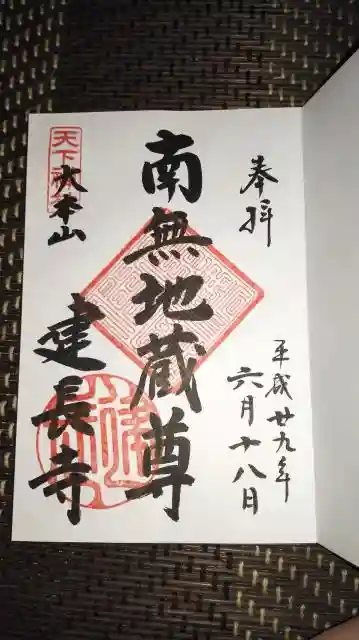 奉拝
平成廿九年
六月十八日
南無地蔵尊
天下禅林
大本山
建長寺